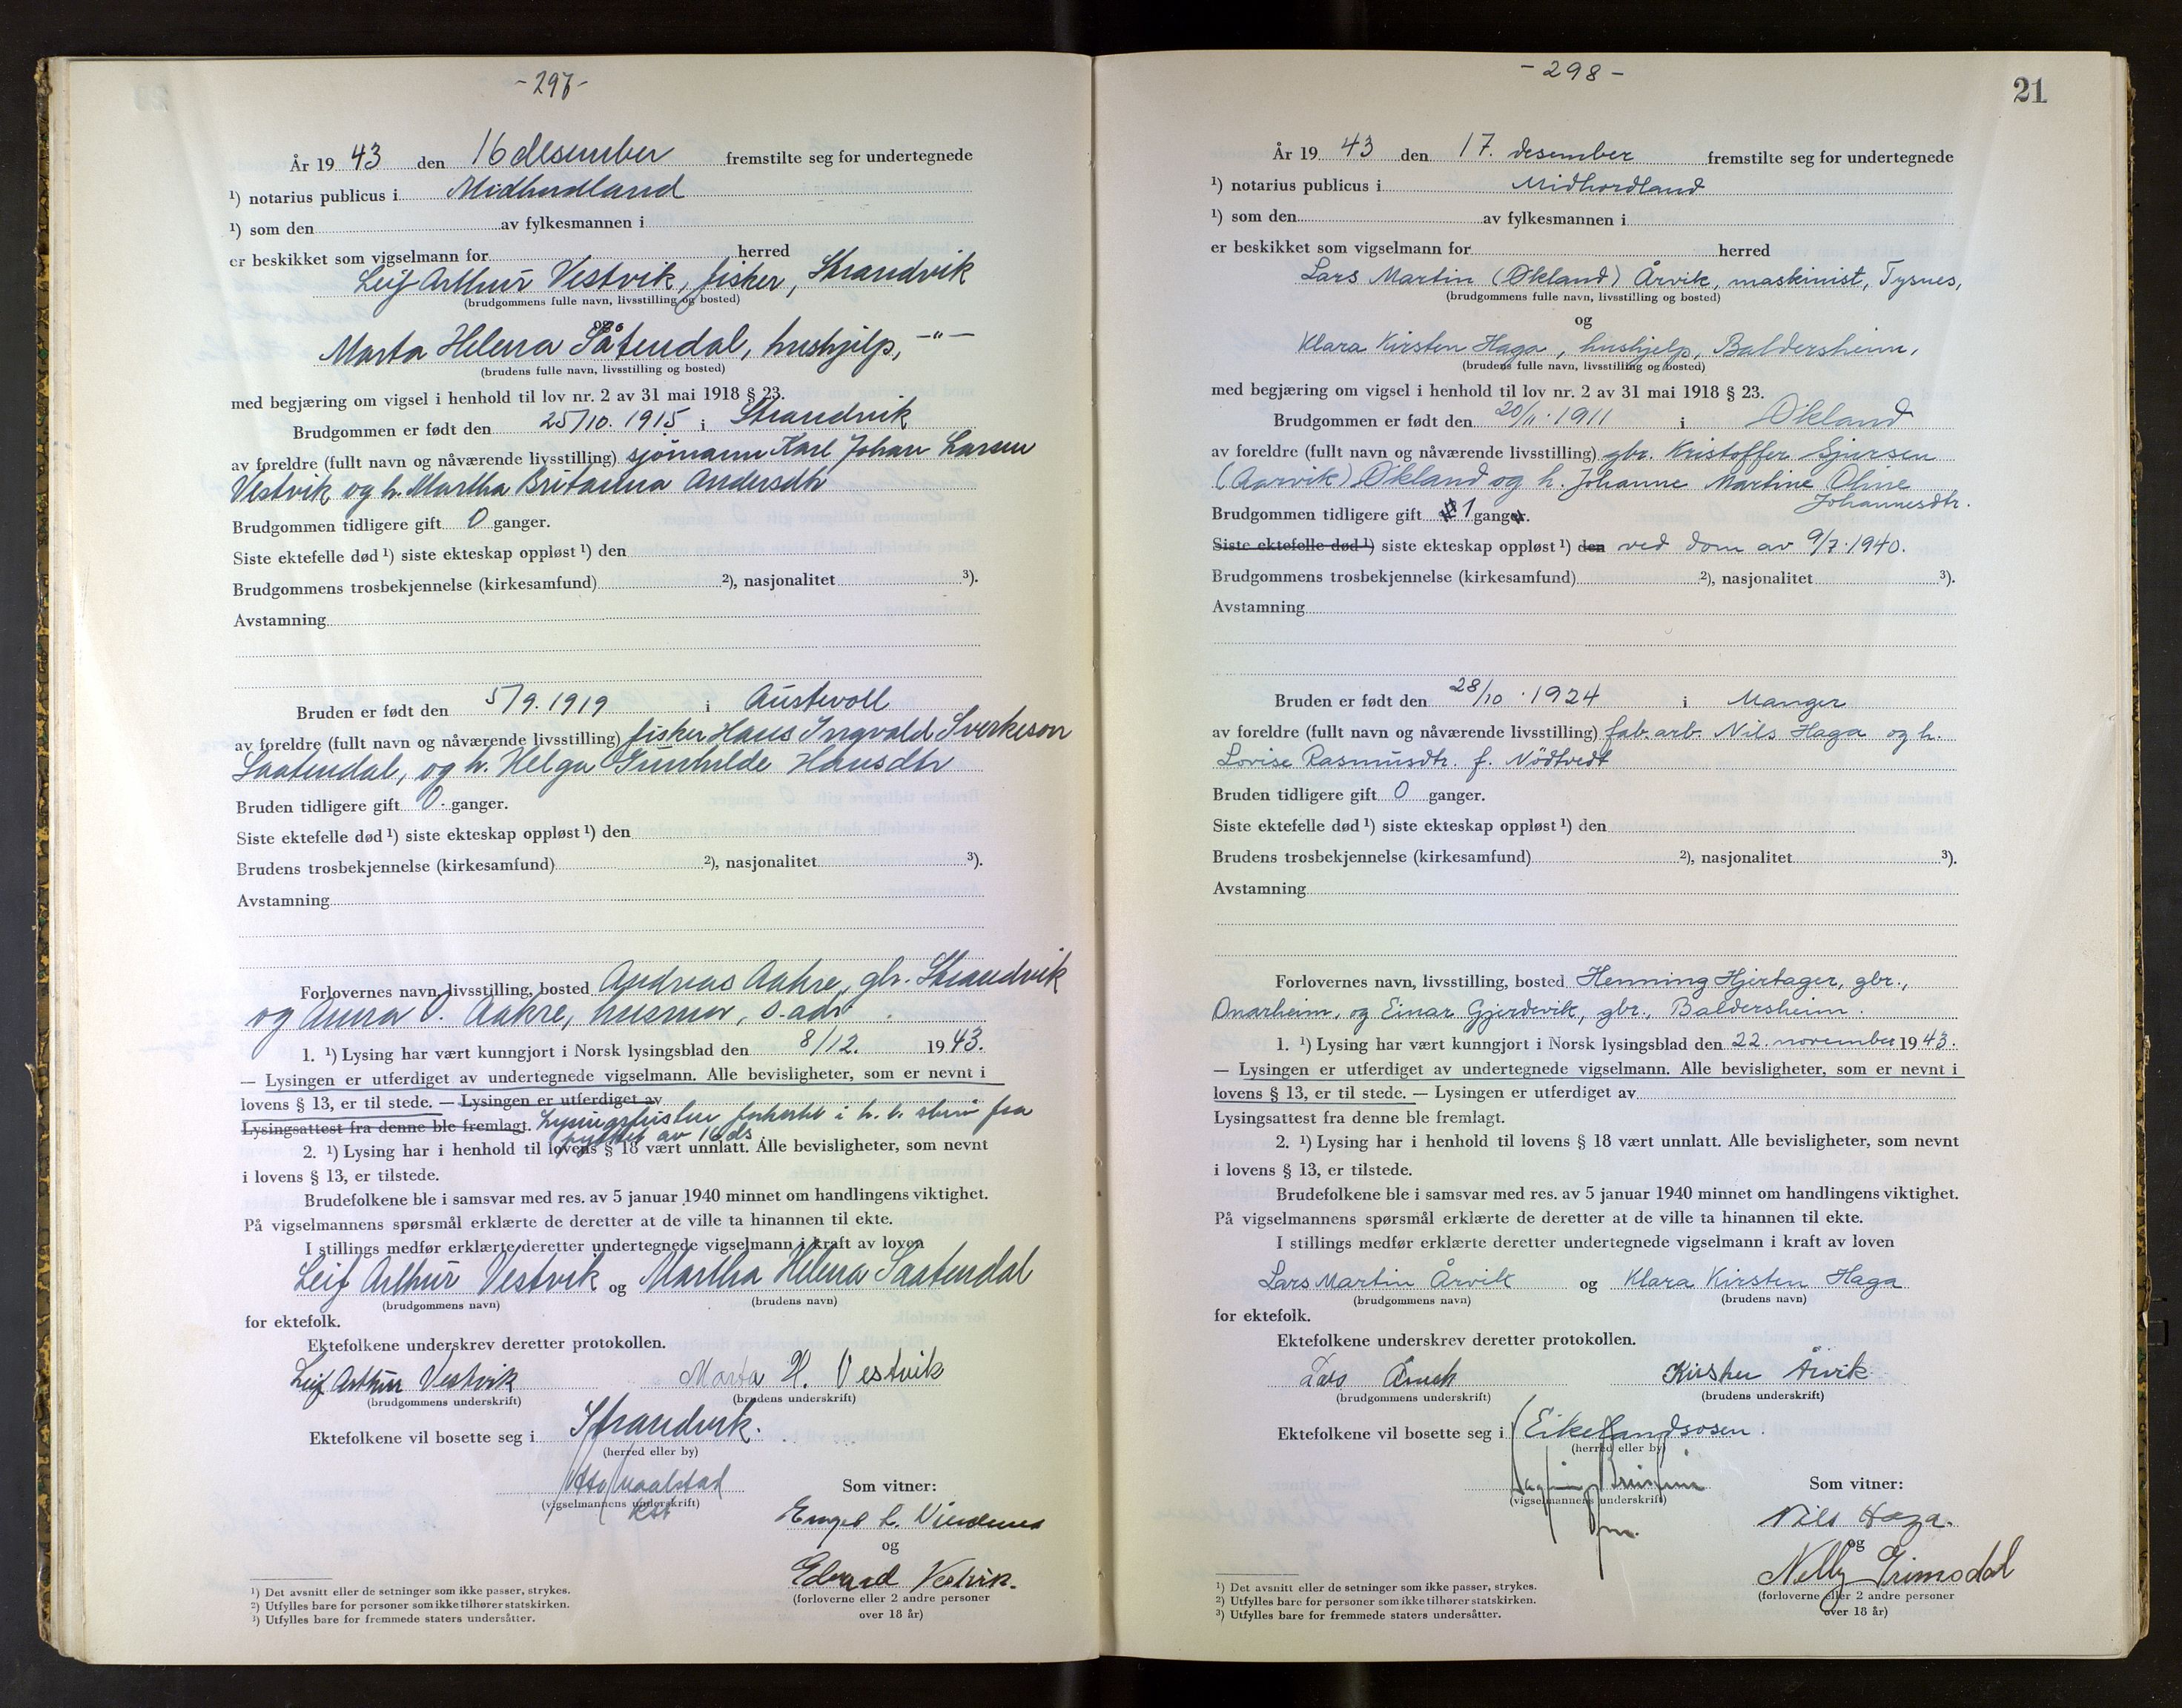 -297-
År 19 43 den 16 desember fremstilte seg for undertegnede
¹) notarius publicus i Midhordland
¹) som den av fylkesmannen i
er beskikket som vigselmann for herred
Leif Arthur Vestvik, fisker, Strandvik
(brudgommens fulle navn, livsstilling og bosted)
og
Marta Helena Såtendal, hushjelp, -"-
(brudens fulle navn, livsstilling og bosted)
med begjæring om vigsel i henhold til lov nr. 2 av 31 mai 1918 § 23.
Brudgommen er født den 25/10. 1915 i Strandvik
av foreldre (fullt navn og nåværende livsstilling) sjömann Karl Johan Larsen
Vestvik og h. Martha Britanna Andersdtr
Brudgommen tidligere gift 0 ganger.
Siste ektefelle død ¹) siste ekteskap oppløst ¹) den
Brudgommens trosbekjennelse (kirkesamfund) ²), nasjonalitet ³).
Avstamning
Bruden er født den 5/9. 1919 i Austevoll
av foreldre (fullt navn og nåværende livsstilling) fisker Hans Ingvald Sverkeson
Saatendal, og h. Helga Gunhilde Hansdtr
Bruden tidligere gift 0. ganger.
Siste ektefelle død ¹) siste ekteskap oppløst ¹) den
Brudens trosbekjennelse (kirkesamfund) ²), nasjonalitet ³).
Avstamning
Forlovernes navn, livsstilling, bosted Andreas Aakre, gbr. Strandvik
og Anna O. Aakre, husmor, s. adr.
1. ¹) Lysing har vært kunngjort i Norsk lysingsblad den 8/12. 19 43.
— Lysingen er utferdiget av undertegnede vigselmann. Alle bevisligheter, som er nevnt i
lovens § 13, er til stede. — Lysingen er utferdiget av
Lysingsattest fra denne ble fremlagt. Lysingsfristen forkortet i h. t. skriv fra
fylket av 16 ds
2. ¹) Lysing har i henhold til lovens § 18 vært unnlatt. Alle bevisligheter, som nevnt
i lovens § 13, er tilstede.
Brudefolkene ble i samsvar med res. av 5 januar 1940 minnet om handlingens viktighet.
På vigselmannens spørsmål erklærte de deretter at de ville ta hinannen til ekte.
I stillings medfør erklærte deretter undertegnede vigselmann i kraft av loven
Leif Arthur Vestvik og Martha Helena Saatendal
(brudgommens navn) (brudens navn)
for ektefolk.
Ektefolkene underskrev deretter protokollen.
Leif Arthur Vestvik Marta H. Vestvik
(brudgommens underskrift) (brudens underskrift)
Ektefolkene vil bosette seg i Strandvik.
(herred eller by)
(vigselmannens underskrift)
Som vitner:
Engel L.
og
Edvard Vestvik.
(forloverne eller 2 andre personer
over 18 år)
¹) Det avsnitt eller de setninger som ikke passer, strykes.
²) Utfylles bare for personer som ikke tilhører statskirken.
³) Utfylles bare for fremmede staters undersåtter.
-298-
21
År 19 43 den 17. desember fremstilte seg for undertegnede
¹) notarius publicus i Midhordland
¹) som den av fylkesmannen i
er beskikket som vigselmann for herred
Lars Martin (Økland) Årvik, maskinist, Tysnes,
(brudgommens fulle navn, livsstilling og bosted)
og
Klara Kirsten Haga, hushjelp, Baldersheim,
(brudens fulle navn, livsstilling og bosted)
med begjæring om vigsel i henhold til lov nr. 2 av 31 mai 1918 § 23.
Brudgommen er født den 20/11. 1911 i Økland
av foreldre (fullt navn og nåværende livsstilling) gbr. Kristoffer Sjursen
(Aarvik) Økland og h. Johanne Martine Oline
Johannesdtr.
Brudgommen tidligere gift 1 gang.
Siste ektefelle død ¹) siste ekteskap oppløst ¹) den ved dom av 9/7. 1940.
Brudgommens trosbekjennelse (kirkesamfund) ²), nasjonalitet ³).
Avstamning
Bruden er født den 28/10. 1924 i Manger
av foreldre (fullt navn og nåværende livsstilling) fab.arb. Nils Haga og h.
Lovise Rasmusdtr. f. Nödtvedt
Bruden tidligere gift 0 ganger.
Siste ektefelle død ¹) siste ekteskap oppløst ¹) den
Brudens trosbekjennelse (kirkesamfund) ²), nasjonalitet ³).
Avstamning
Forlovernes navn, livsstilling, bosted Henning Hjertager, gbr.,
Onarheim, og Einar Gjerdevik, gbr., Baldersheim.
1. ¹) Lysing har vært kunngjort i Norsk lysingsblad den 22. november 19 43.
— Lysingen er utferdiget av undertegnede vigselmann. Alle bevisligheter, som er nevnt i
lovens § 13, er til stede. — Lysingen er utferdiget av
Lysingsattest fra denne ble fremlagt.
2. ¹) Lysing har i henhold til lovens § 18 vært unnlatt. Alle bevisligheter, som nevnt
i lovens § 13, er tilstede.
Brudefolkene ble i samsvar med res. av 5 januar 1940 minnet om handlingens viktighet.
På vigselmannens spørsmål erklærte de deretter at de ville ta hinannen til ekte.
I stillings medfør erklærte deretter undertegnede vigselmann i kraft av loven
Lars Martin Årvik og Klara Kirsten Haga
(brudgommens navn) (brudens navn)
for ektefolk.
Ektefolkene underskrev deretter protokollen.
Lars Årvik Kirsten Årvik
(brudgommens underskrift) (brudens underskrift)
Ektefolkene vil bosette seg i Eikelandsosen.
(herred eller by)
(vigselmannens underskrift)
Som vitner:
Nils Haga.
og
Nelly Grimsdal
(forloverne eller 2 andre personer
over 18 år)
¹) Det avsnitt eller de setninger som ikke passer, strykes.
²) Utfylles bare for personer som ikke tilhører statskirken.
³) Utfylles bare for fremmede staters undersåtter.